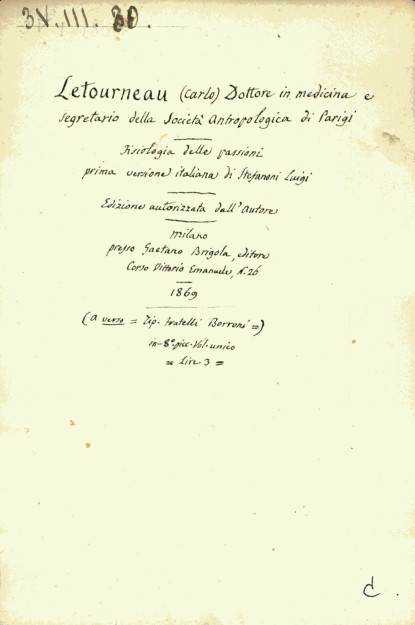 3N.III.30.
Letourneau (Carlo) Dottore in medicina e
segretario della Società Antropologica di Parigi
Fisiologia delle passioni
prima versione italiana di Stefanoni Luigi
Edizione autorizzata dall'Autore
Milano
presso Gaetano Brigola, editore
Corso Vittorio Emanuele, n. 26
1869
(a verso = Tip. Fratelli Borroni =)
in-8º picc. Vol. unico
= Lire 3 =
C